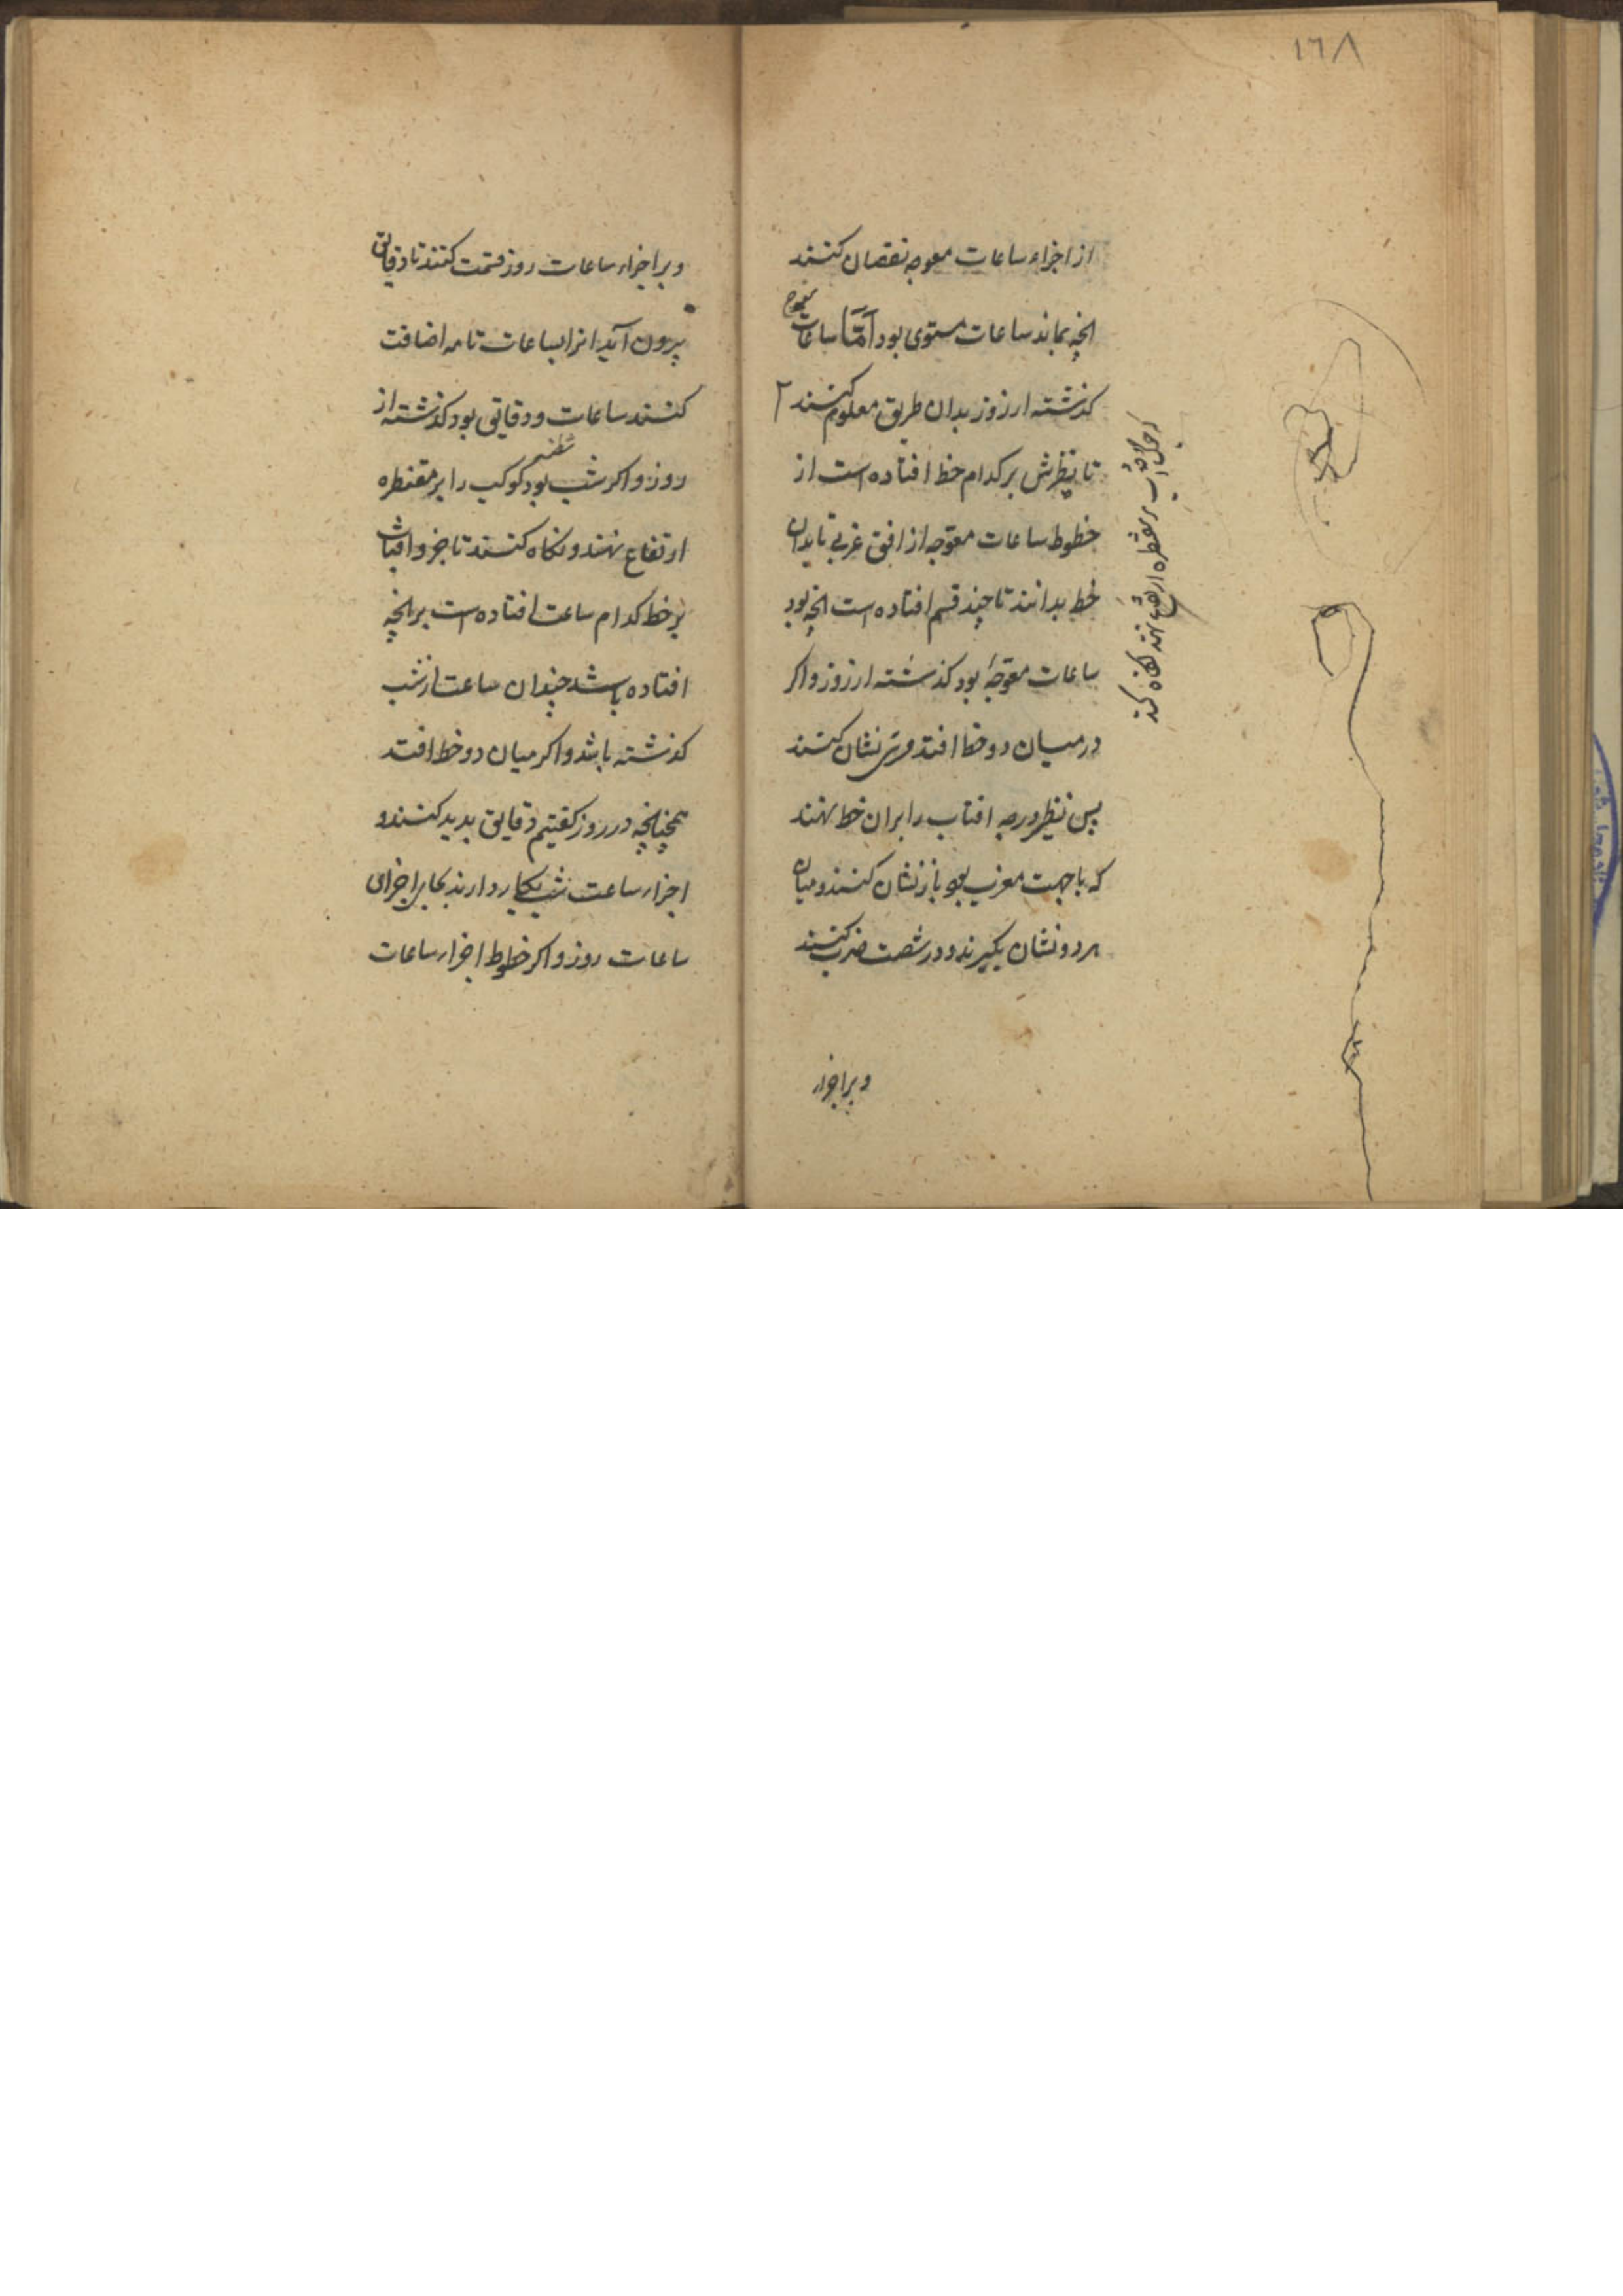 ١٦٨
از اجزاء ساعات معوجه نقصان کنند
انچه بماند ساعات مستوی بود امّا ساعات
معوج
کذشته از روز بدان طریق معلوم کنند ٢
تا نظیرش بر کدام خط افتاده است از
خطوط ساعات معوّجه از افق غربی تا بدان
خط بدانند تا چند قسم افتاده است انچه بود
ساعات معوّجه بود کذشته از روز و اکر
در میان دو خط افتد مری نشان کنند
پس نظیر درجه افتاب را بران خط نهند
که با جهت مغرب بود باز نشان کنند و میان
هر دو نشان بکیرند و در شصت ضرب کنند
و بر اجزاء
بر مقنطره ارتفاع نهند نکاه کنند
و بر اجزاء ساعات روز قسمت کنند تا دقایق
بیرون آید انرا بساعات تامه اضافت
کنند ساعات و دقایقی بود کذشته از
روز و اکر شب بود کوکب را بر مقنطره
ارتفاع نهند و نکاه کنند تا جزو افتاب
بر خط کدام ساعت افتاده است بر انچه
افتاده باشد چندان ساعت از شب
کذشته باشد و اکر میان دو خط افتد
همچنانچه در روز کفتیم دقایق بدید کنند و
اجزاء ساعت شب بکار دارند بجای اجزای
ساعات روز و اکر خطوط اجزاء ساعات